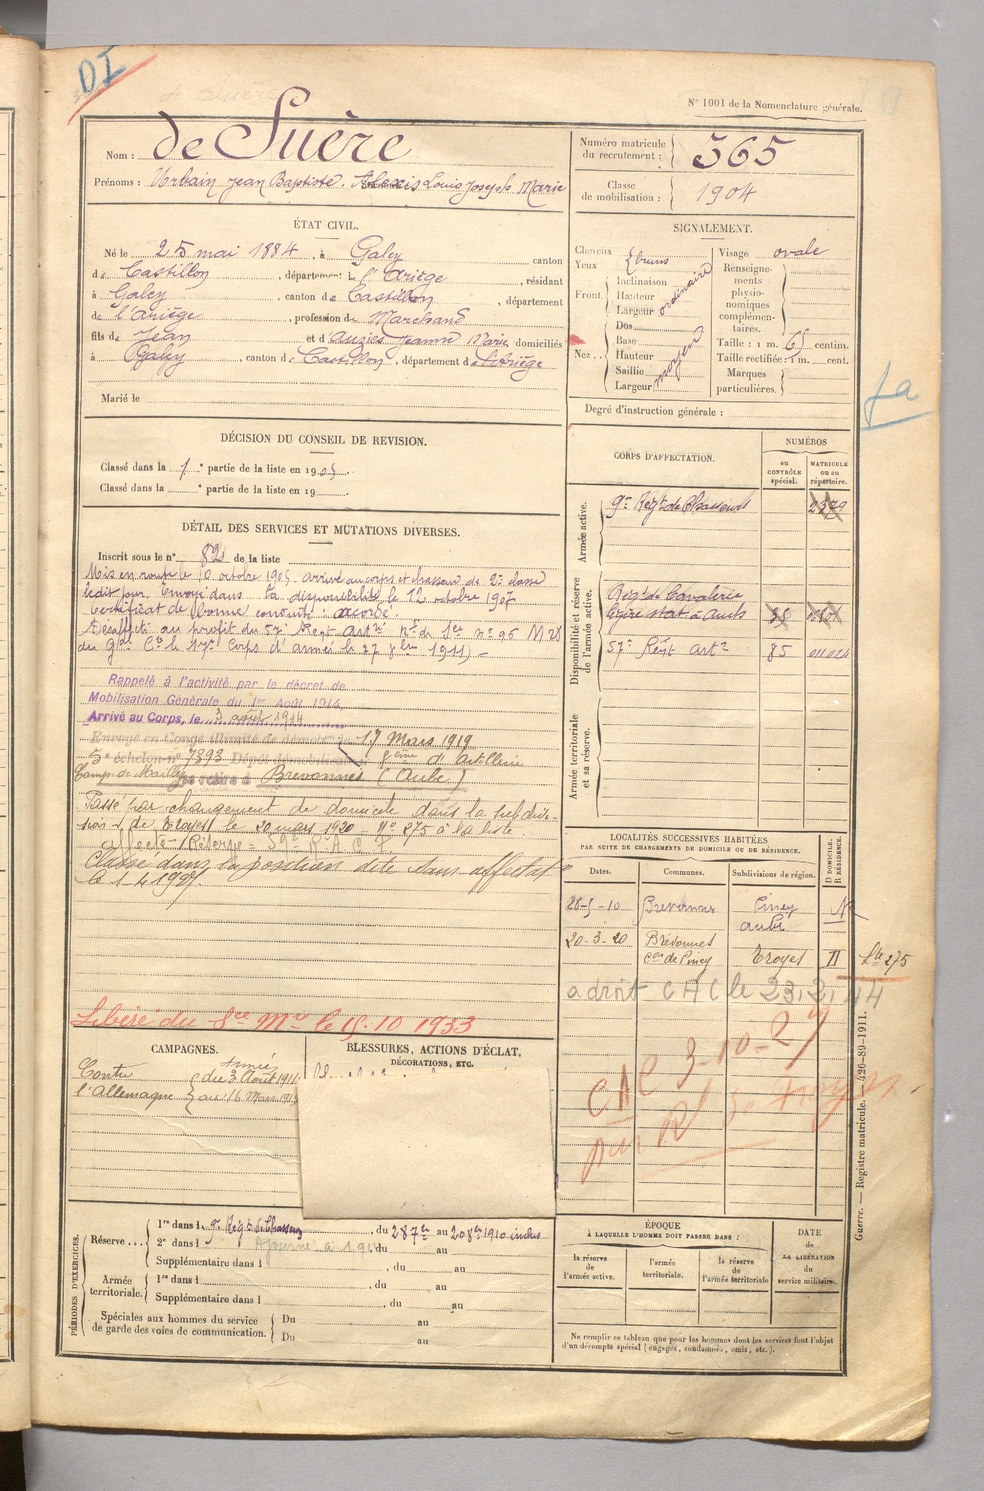 DI
N° 1001 de la Nomenclature générale.
Nom : de Suère
Prénoms : Urbain Jean Baptiste Alexis Louis Joseph Marie
Numéro matricule du recrutement : 365
Classe de mobilisation : 1904
ÉTAT CIVIL.
Né le 25 mai 1884, à Galey, canton
de Castillon, département de l'Ariège, résidant
à Galey, canton de Castillon, département
de l'Ariège, profession de Marchand
fils de Jean et d'Auziès Jeanne Marie domiciliés
à Galey, canton de Castillon, département de l'Ariège
Marié le
SIGNALEMENT.
Cheveux
Yeux
bruns
Front.
Inclinaison
Hauteur
Largeur
ordinaire
Nez..
Dos
Base
Hauteur
Saillie
Largeur
moyen
Visage ovale
Renseignements physionomiques complémentaires.
Taille : 1 m. 65 centim.
Taille rectifiée : m. cent.
Marques particulières.
Degré d'instruction générale :
fa
DÉCISION DU CONSEIL DE REVISION.
Classé dans la 1re partie de la liste en 1905.
Classé dans la partie de la liste en 19
DÉTAIL DES SERVICES ET MUTATIONS DIVERSES.
Inscrit sous le n° 82 de la liste
Mis en route le 10 octobre 1905 arrivé au corps et chasseur de 2e classe
ledit jour. Envoyé dans la disponibilité le 12 octobre 1907
Certificat de bonne conduite : accordé
Désaffecté au profit du 57e Régt Artie
du Gal Ct le 17e Corps d'armée le 27 1911)
Rappelé à l'activité par le décret de
Mobilisation Générale du 1er Août 1914.
Arrivé au Corps, le 3 août 1914
Envoyé en Congé illimité de démob le 17 Mars 1919
5e échelon n° 7393 Dépôt démobilisateur 8ème d'Artillerie
Camp de Mailly se retire à Brevonnes (Aube)
Passé par changement de domicile dans la subdivi-
sion de Troyes le 20 mars 1920 N° 275 à la liste.
Classé dans la position dite sans affectation
le 1-4-1927.
Libéré du Sce Mre le 15.10 1933
CORPS D'AFFECTATION.
NUMÉROS
au CONTRÔLE spécial.
MATRICULE ou au répertoire.
Armée active.
9e Régt de Chasseurs 2379
Disponibilité et réserve de l'armée active.
Régt de Cavalerie
légère stat à Auch 38
57e Régt Artie 85 011024
Armée territoriale et sa réserve.
LOCALITÉS SUCCESSIVES HABITÉES
PAR SUITE DE CHANGEMENTS DE DOMICILE OU DE RÉSIDENCE.
Dates. Communes. Subdivisions de région. D DOMICILE. R RÉSIDENCE.
28-5-10 Brevonnes Piney Aube R
20-3-20 Brévonnes Con de Piney Troyes D Lte 275
a droit CAC le 23.2.44
CAC 3-10-27
CAMPAGNES.
Contre l'Allemagne
Armée
du 3 Août 1914
au 16 Mars 1919
BLESSURES, ACTIONS D'ÉCLAT,
DÉCORATIONS, ETC.
PÉRIODES D'EXERCICES.
Réserve...
1re dans le 9e Régt de Chasseurs, du 28 7bre au 20 8bre 1910 inclus
2e dans l Ajourné à 191 du au
Supplémentaire dans l, du au
Armée territoriale.
1re dans l, du au
Supplémentaire dans l, du au
Spéciales aux hommes du service de garde des voies de communication.
Du au
Du au
ÉPOQUE
À LAQUELLE L'HOMME DOIT PASSER DANS :
la réserve de l'armée active.
l'armée territoriale.
la réserve de l'armée territoriale
DATE de LA LIBÉRATION du service militaire.
Ne remplir ce tableau que pour les hommes dont les services font l'objet
d'un décompte spécial (engagés, condamnés, omis, etc.).
Guerre. — Registre matricule. — 426-89-1911.